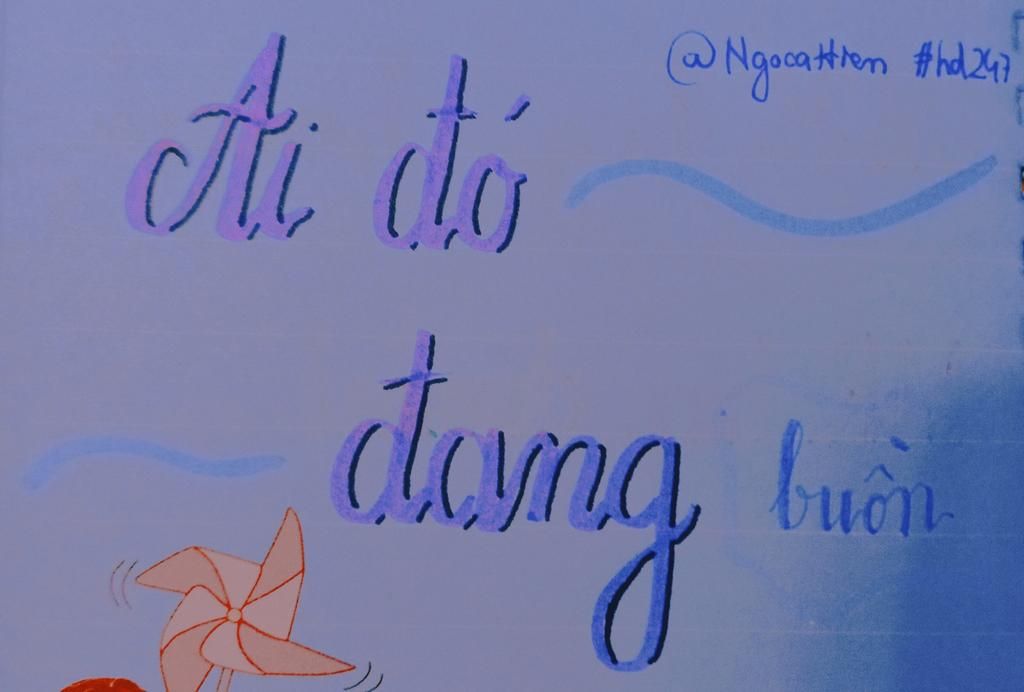 @NgocaHien #hd247
Ai đó
đang buồn